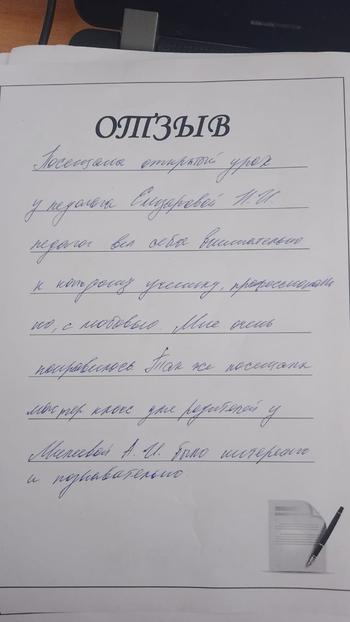 ОТЗЫВ
Посещала открытый урок
у педагога Сизаровой Н.И.
педагог вел себя внимательно
к каждому ученику, профессиональ
но, с любовью. Мне очень
понравилось. Так же посещали
мастер класс для родителей у
Милеевой А. И. было интересно
и познавательно